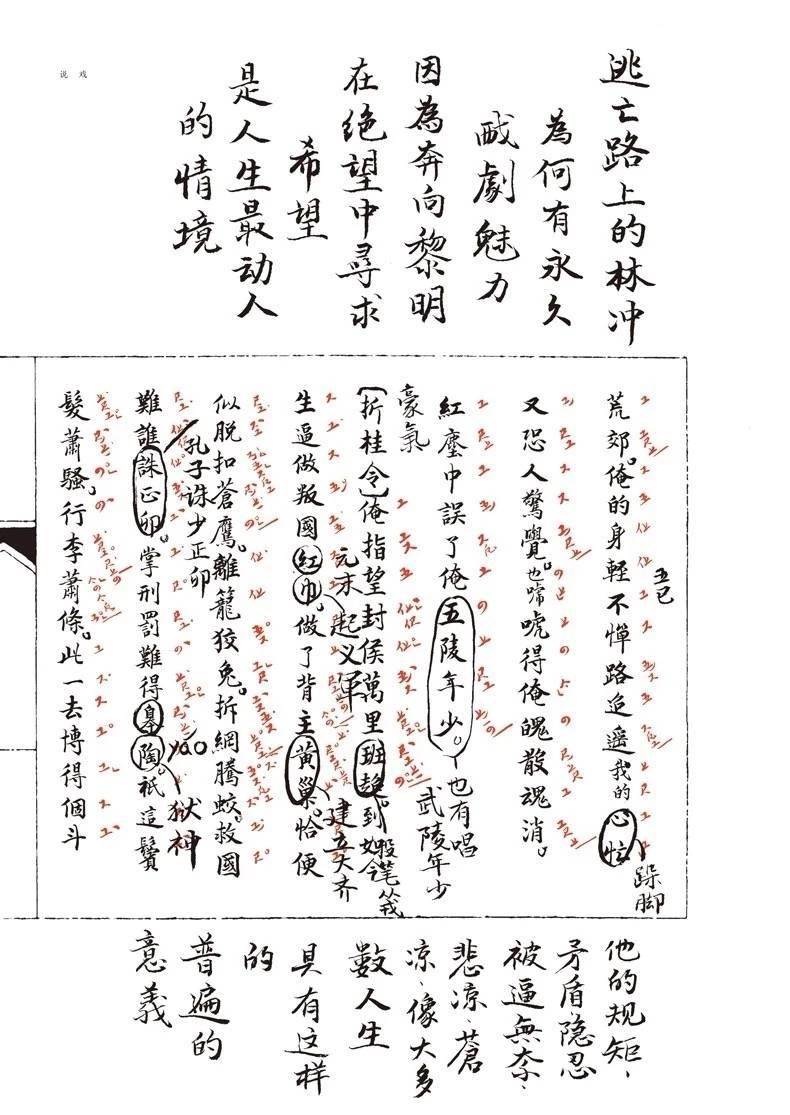 说戏
逃亡路上的林冲
為何有永久
戲劇魅力
因為奔向黎明
在绝望中尋求
希望
是人生最动人
的情境
荒郊。俺的身輕不憚路迢遥我的心忙
跺脚
又恐人驚覺。也嚇唬得俺魄散魂消。
紅塵中誤了俺五陵年少。
也有唱
武陵年少
豪氣
【折桂令】俺指望封侯萬里班超。到如今
投笔
元末起义军
生逼做叛國紅巾。做了背主黃巢。恰便
建立大齐
似脱扣蒼鷹。離籠狡兔。折網騰蛟。救國
孔子诛少正卯
難誰誅正卯。掌刑罰難得皋陶。祇這鬢
yáo
狱神
髮蕭騷。行李蕭條。此一去博得個斗
他的规矩、
矛盾、隐忍
被逼無奈、
悲凉、蒼
凉、像大多
數人生
具有这样
的
普遍的
意義